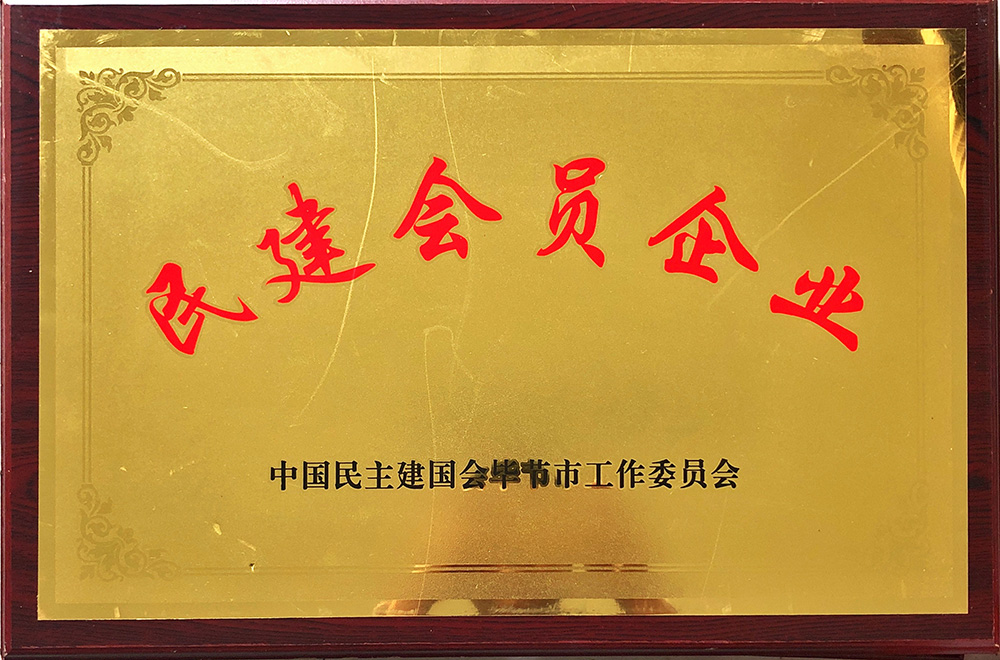 民建会员企业
中国民主建国会毕节市工作委员会